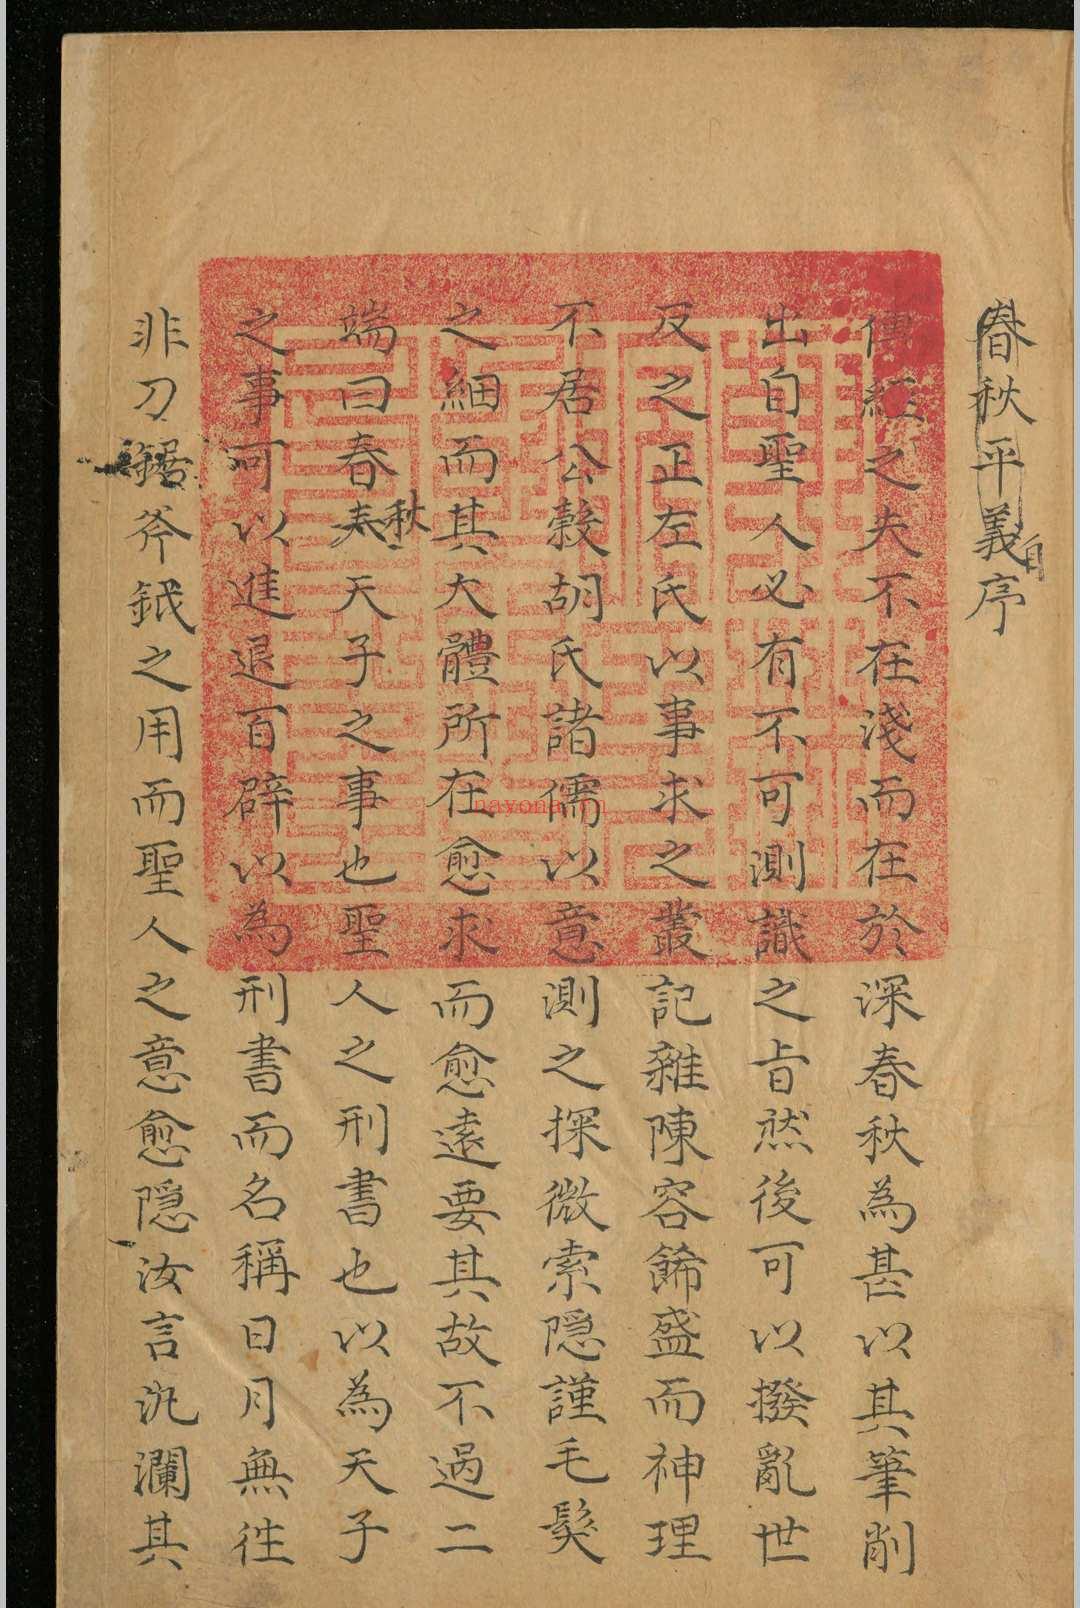 春秋平義自序
傳經之失不在淺而在於深春秋為甚以其筆削
出自聖人必有不可測識之旨然後可以撥亂世
反之正左氏以事求之叢記雜陳容餙盛而神理
不居公穀胡氏諸儒以意測之探微索隱謹毛髮
之細而其大體所在愈求而愈遠要其故不過二
端曰春秋天子之事也聖人之刑書也以為天子
之事可以進退百辟以為刑書而名稱日月無徃
非刀鋸斧鉞之用而聖人之意愈隱汝言沉瀾其
nayona.cn